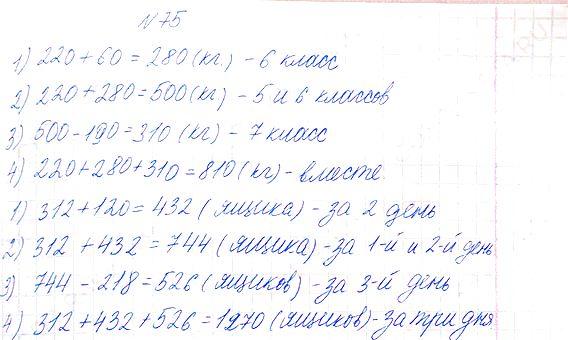 №75
1) 220+60=280(кг.) - 6 класс
2) 220+280=500(кг) - 5 и 6 классов
3) 500-190=310 (кг) - 7 класс
4) 220+280+310=810(кг) - вместе
1) 312+120=432 (ящика) - за 2 день
2) 312 +432=744 (ящика) - за 1-й и 2-й день
3) 744 - 218=526 (ящиков) - за 3-й день
4) 312+432+526=1270 (ящиков) - за три дня